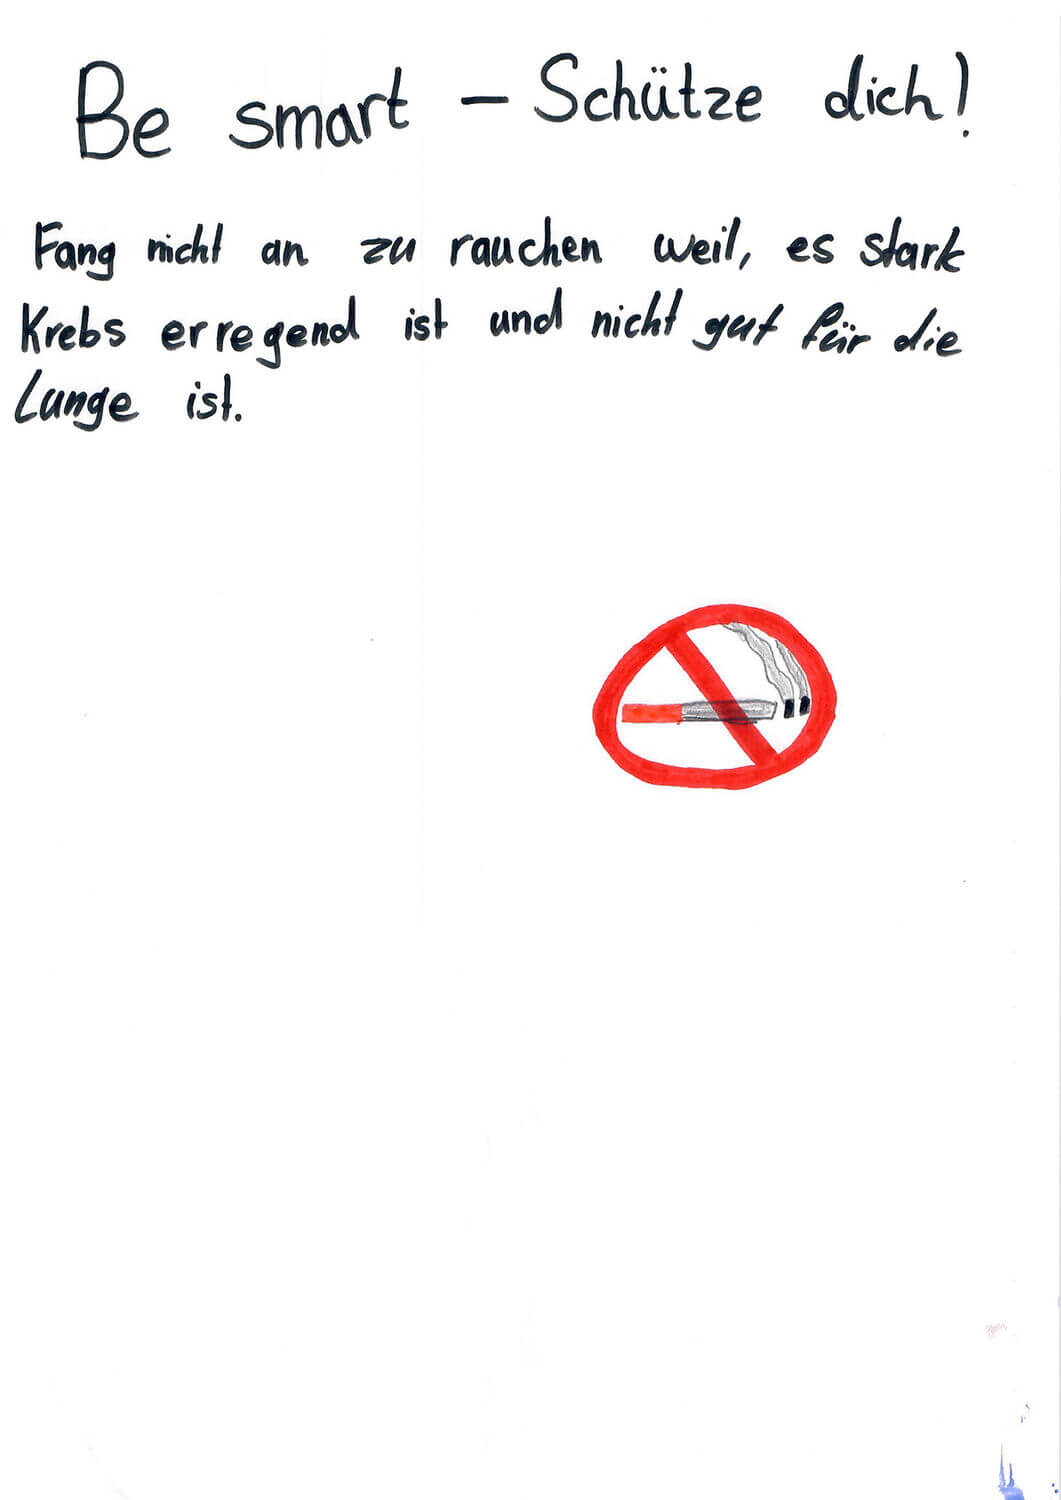 Be smart – Schütze dich!
Fang nicht an zu rauchen weil, es stark
Krebs erregend ist und nicht gut für die
Lunge ist.